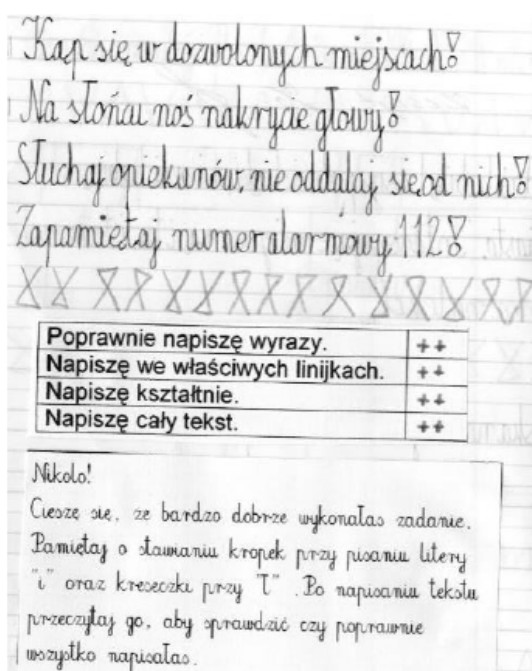 Kąp się w dozwolonych miejscach!
Na słońcu noś nakrycie głowy!
Słuchaj opiekunów, nie oddalaj się od nich!
Zapamiętaj numer alarmowy 112!
Poprawnie napiszę wyrazy. ++
Napiszę we właściwych linijkach. ++
Napiszę kształtnie. ++
Napiszę cały tekst. ++
Nikolo!
Cieszę się, że bardzo dobrze wykonałaś zadanie.
Pamiętaj o stawianiu kropek przy pisaniu litery
"i" oraz kreseczki przy "Ł". Po napisaniu tekstu
przeczytaj go, aby sprawdzić czy poprawnie
wszystko napisałaś.